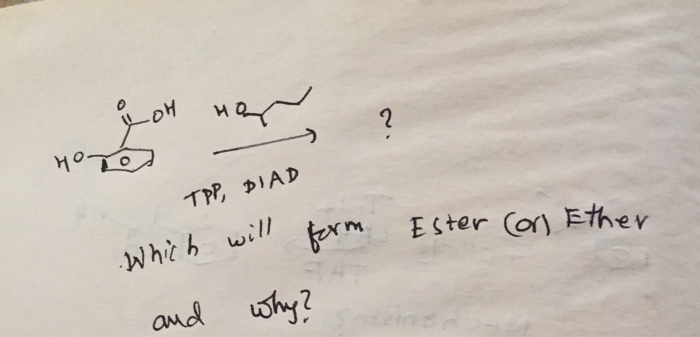 O
OH HO
HO O ?
TPP, DIAD
Which will form Ester (or) Ether
and why?